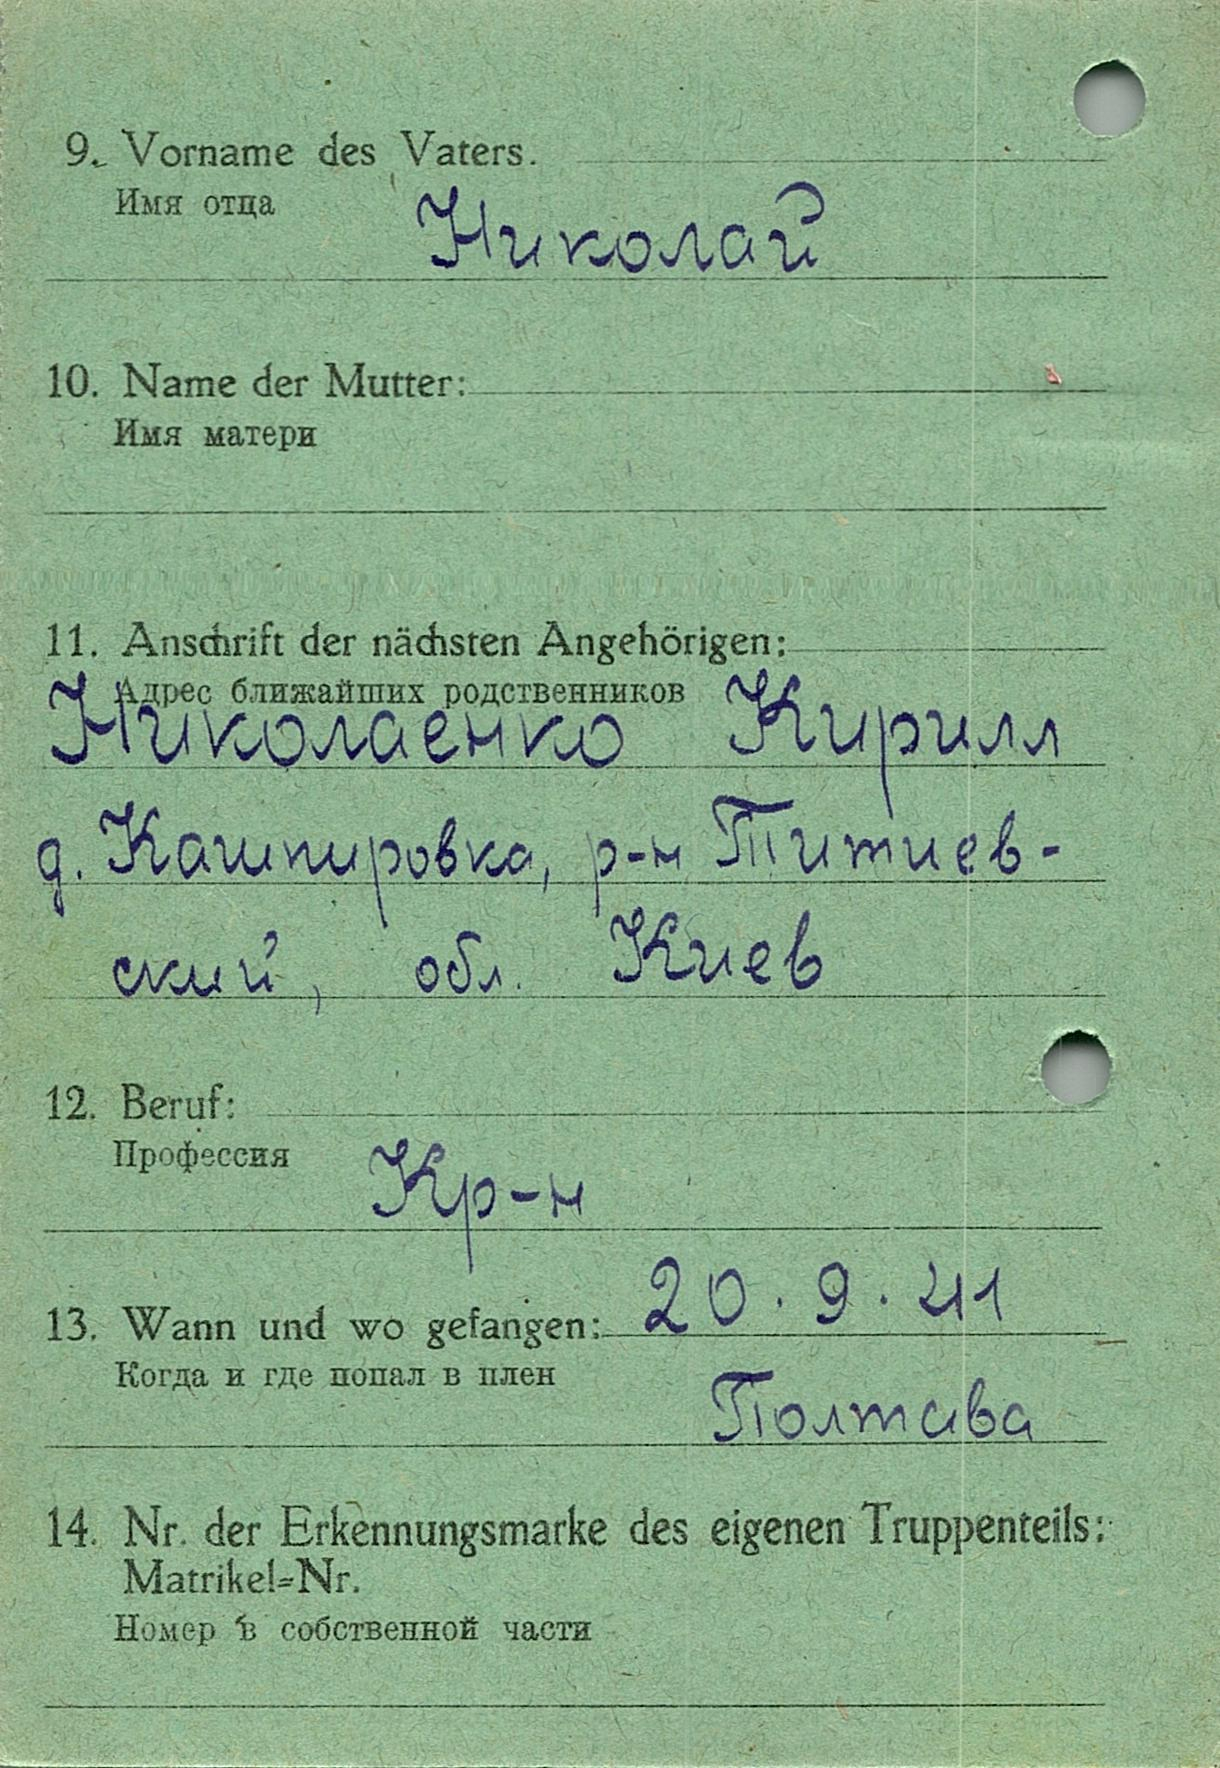 9. Vorname des Vaters.
Имя отца
Николай
10. Name der Mutter:
Имя матери
11. Anschrift der nächsten Angehörigen:
Адрес ближайших родственников
Николаенко Кирилл
д. Кашпировка, р-н Титиев-
ский, обл. Киев
12. Beruf:
Профессия
Кр-н
20.9.41
13. Wann und wo gefangen:
Когда и где попал в плен
Полтава
14. Nr. der Erkennungsmarke des eigenen Truppenteils:
Matrikel=Nr.
Номер в собственной части